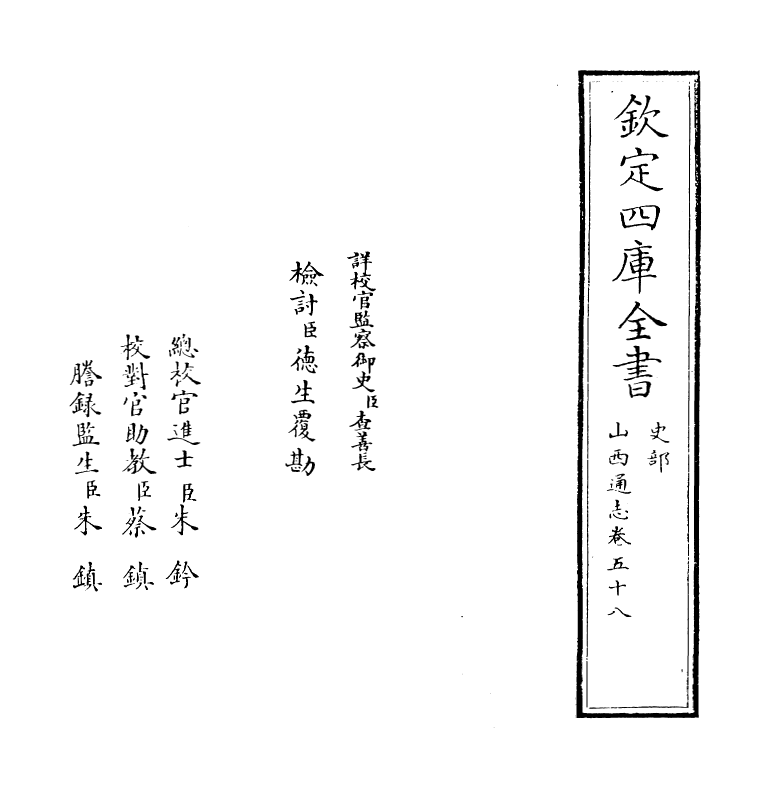 欽定四庫全書
史部
山西通志卷五十八
詳校官監察御史臣查善長
檢討臣德生覆勘
總校官進士臣朱鈐
校對官助教臣蔡鎮
謄錄監生臣朱鎮